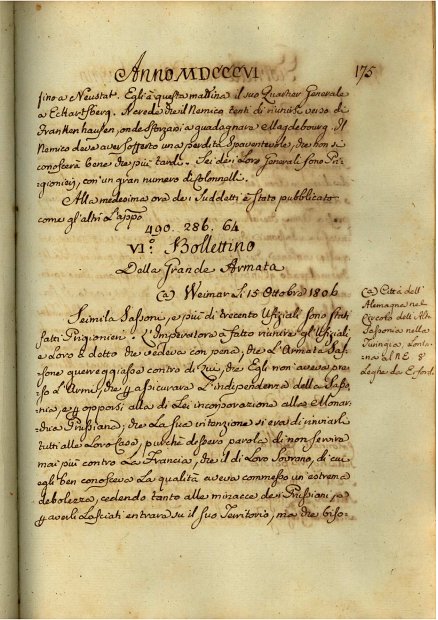 Anno MDCCCVI
175
fino a Neustat. Egli à questa mattina il suo Quartier Generale
a Eckartsberg. Si crede che il Nemico tenti di riunirsi verso di
Frankenhausen, onde sforzarsi a guadagnare Magdebourg. Il
Nemico deve aver sofferto una perdita spaventevole, che non si
conoscerà bene che più tardi. Sei de' Loro Generali sono Pri-
gionieri, con un gran numero di Colonnelli.
Alla medesima ora de' suddetti è stato pubblicato
come gl'altri L'appo
490. 286. 64
VI.º Bollettino
Della Grande Armata
(a) Weimar li 15 Ottobre 1806
Seimila Sassoni, e più di trecento Ufiziali sono stati
fatti Prigionieri. L'Imperatore à fatto riunire gl'Ufiziali,
e Loro à detto che vedeva con pena, che L'Armata Sas-
sone guerreggiasse contro di Lui, che Egli non aveva pre-
so L'Armi, che p assicurare L'indipendenza della Sasso-
nia, e p opporsi alla di Lei incorporazione alla Monar-
chia Prussiana; che La sua intenzione si era di rinviarli
tutti alle Loro Case, purchè dessero parola di non servire
mai più contro La Francia, che il di Loro Sovrano, di cui
egli ben conosceva La qualità aveva commesso un'estrema
debolezza, cedendo tanto alle minacce de' Prussiani, e
p averli Lasciati entrare su il suo Territorio, ma che biso-
(a) Città dell'
Alemagna nel
Circolo dell'Alta
Sassonia nella
Turingia, Lonta-
na al N.E. 8
Leghe da Erford.